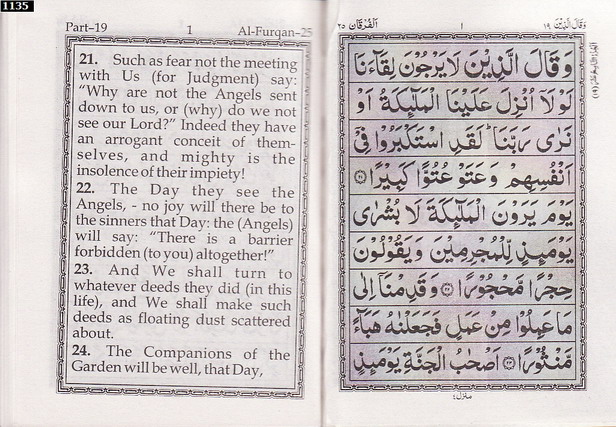 1135
Part-19 1 Al-Furqan-25
21. Such as fear not the meeting
with Us (for Judgment) say:
“Why are not the Angels sent
down to us, or (why) do we not
see our Lord?” Indeed they have
an arrogant conceit of them-
selves, and mighty is the
insolence of their impiety!
22. The Day they see the
Angels, - no joy will there be to
the sinners that Day: the (Angels)
will say: “There is a barrier
forbidden (to you) altogether!”
23. And We shall turn to
whatever deeds they did (in this
life), and We shall make such
deeds as floating dust scattered
about.
24. The Companions of the
Garden will be well, that Day,
وَقَالَ الَّذِيْنَ ١٩ ١ اَلْفُرْقَان ٢٥
وَقَالَ الَّذِيْنَ لَا يَرْجُوْنَ لِقَآءَنَا
لَوْلَآ اُنْزِلَ عَلَيْنَا الْمَلٰٓئِكَةُ اَوْ
نَرٰى رَبَّنَا ؕ لَقَدِ اسْتَكْبَرُوْا فِيْٓ
اَنْفُسِهِمْ وَعَتَوْ عُتُوًّا كَبِيْرًا ﴿٢١﴾
يَوْمَ يَرَوْنَ الْمَلٰٓئِكَةَ لَا بُشْرٰى
يَوْمَئِذٍ لِّلْمُجْرِمِيْنَ وَيَقُوْلُوْنَ
حِجْرًا مَّحْجُوْرًا ﴿٢٢﴾ وَقَدِمْنَآ اِلٰى
مَا عَمِلُوْا مِنْ عَمَلٍ فَجَعَلْنٰهُ هَبَآءً
مَّنْثُوْرًا ﴿٢٣﴾ اَصْحٰبُ الْجَنَّةِ يَوْمَئِذٍ
منزل ٤